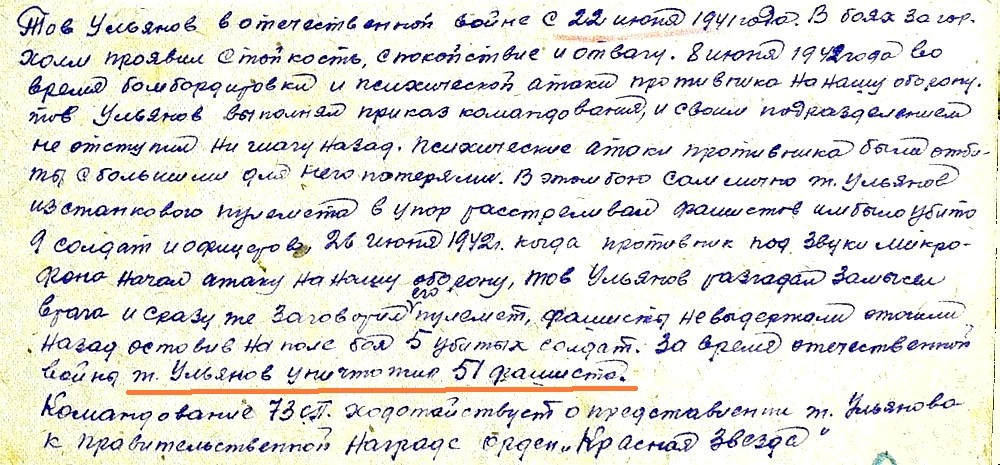 Тов Ульянов в отечественной войне с 22 июня 1941 года. В боях за гор.
Холм проявил стойкость, спокойствие и отвагу. 8 июня 1942 года во
время бомбордировки и психической атаки противника на нашу оборону.
тов Ульянов выполнял приказ командования, и своим подразделением
не отступил ни шагу назад. Психические атаки противника были отби-
ты с большими для него потерями. В этом бою сам лично т. Ульянов
из станкового пулемета в упор расстреливал фашистов им было убито
9 солдат и офицеров. 26 июня 1942г. когда противник под звуки микро-
фона начал атаку на нашу оборону, тов Ульянов разгадал замысел
врага и сразу же заговорил его пулемет, фашисты не выдержали отошли
назад оставив на поле боя 5 убитых солдат. За время отечественной
войны т. Ульянов уничтожил 51 фашиста.
Командование 73 сп. ходотайствует о представлении т. Ульянова
к правительственной награде орден „Красная Звезда"